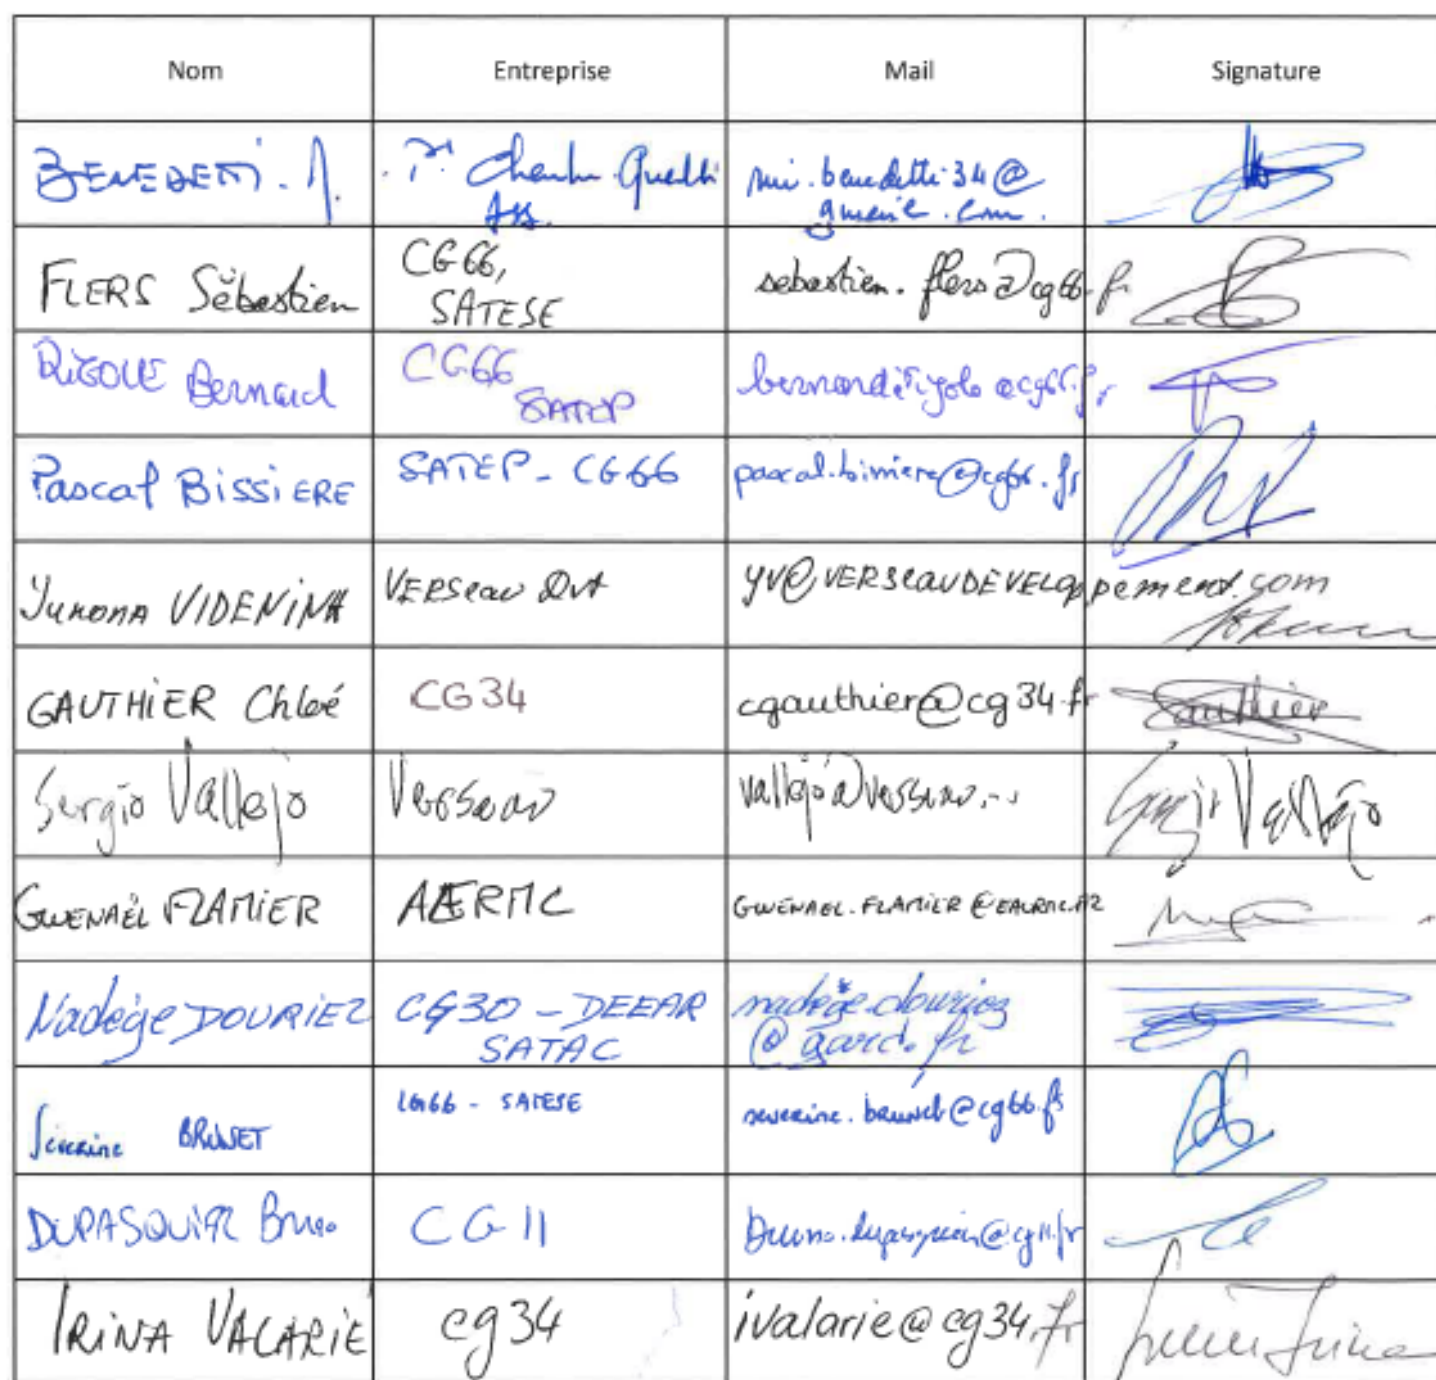 Nom Entreprise Mail Signature
BENEDETTI
gmail.com
FLERS Sébastien CG66, SATESE sebastien.flers@cg66.fr
RIGOLE Bernard CG66 SATEP
Pascal BISSIERE SATEP - CG66 pascal.bissiere@cg66.fr
VIDENINA VERSeau Dvt yv@VERSeauDEVELOppement.com
GAUTHIER Chloé CG34 cgauthier@cg34.fr Gauthier
Sergio Vallejo Verseau Vallejo
GWENAËL FLAMIER AERMC GWENAEL.FLAMIER@EAURMC.FR
Nadège DOURIEZ CG30 - DEEAR SATAC nadege.douriez@gard.fr
Séverine BRUNET CG66 - SATESE severine.brunet@cg66.fr
DUPASQUIER Bruno CG11 bruno.dupasquier@cg11.fr
IRINA VALARIE cg34 ivalarie@cg34.fr